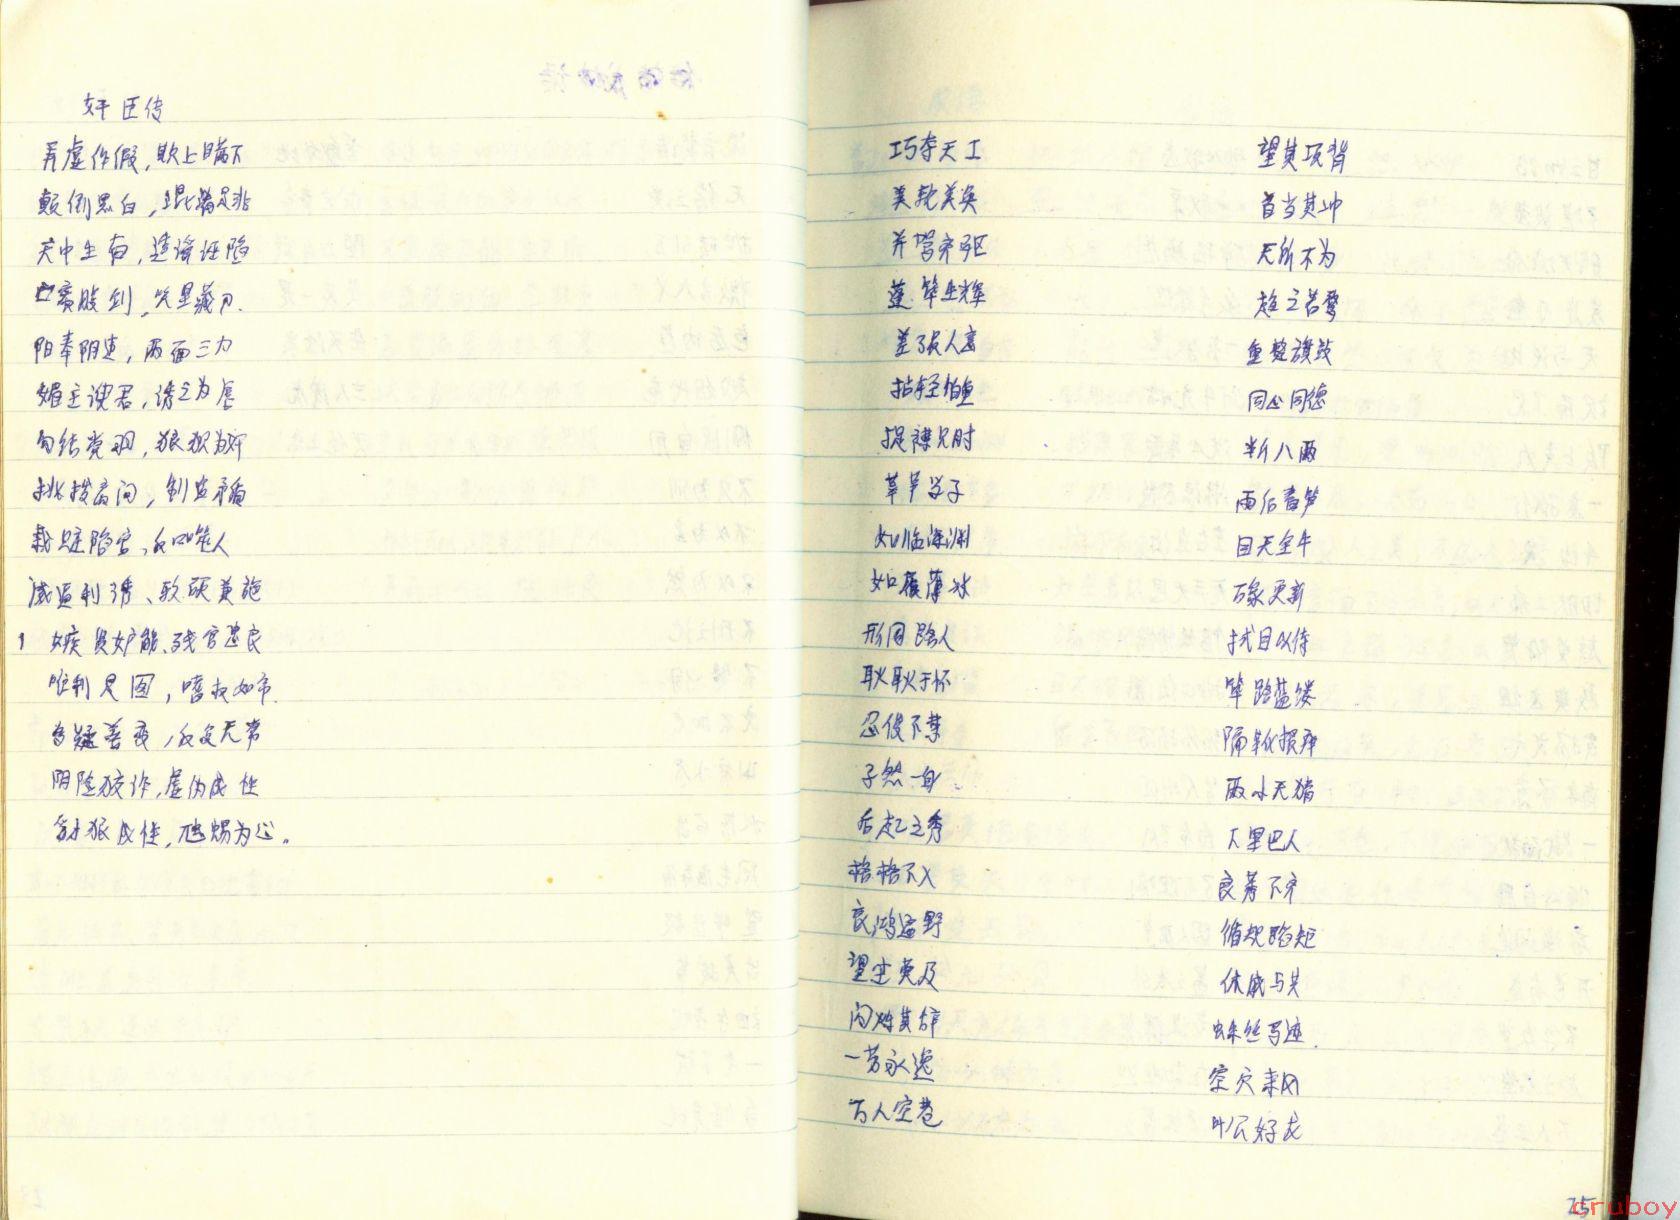 奸臣传
弄虚作假，欺上瞒下
颠倒黑白，混淆是非
无中生有，造谣诬陷
口蜜腹剑，笑里藏刀.
阳奉阴违，两面三刀
媚主谀君，诱之为恶
勾结党羽，狼狈为奸
挑拨离间，制造矛盾
栽赃陷害，反口噬人
威逼利诱、软硬兼施
1 嫉贤妒能、残害忠良
唯利是图，嗜权如命.
多疑善变，反复无常
阴险狡诈，虚伪成性
豺狼成性，虺蜴为心。
巧夺天工
美轮美奂
并驾齐驱
蓬荜生辉
差强人意
拈轻怕重
捉襟见肘
莘莘学子
如临深渊
如履薄冰
形同路人
耿耿于怀
忍俊不禁
孑然一身
后起之秀
格格不入
哀鸿遍野
望尘莫及
闪烁其辞
一劳永逸
万人空巷
望其项背
首当其冲
无所不为
趋之若鹜
重整旗鼓
同心同德
半斤八两
雨后春笋
目无全牛
万象更新
拭目以待
筚路蓝缕
隔靴搔痒
两小无猜
下里巴人
良莠不齐
循规蹈矩
休戚与共
蛛丝马迹.
空穴来风
叶公好龙
25
gruboy